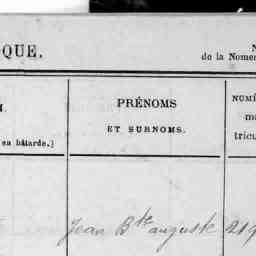 QUE.
N
de la Nomen
PRÉNOMS
ET SURNOMS.
NUMÉ
ma
tricu
en bâtarde.)
Jean Bte auguste 219